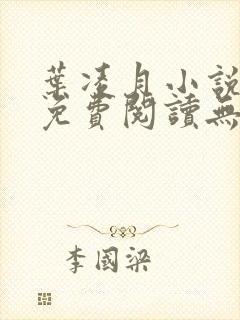 葉凌月小說
免費閱讀無
李國梁